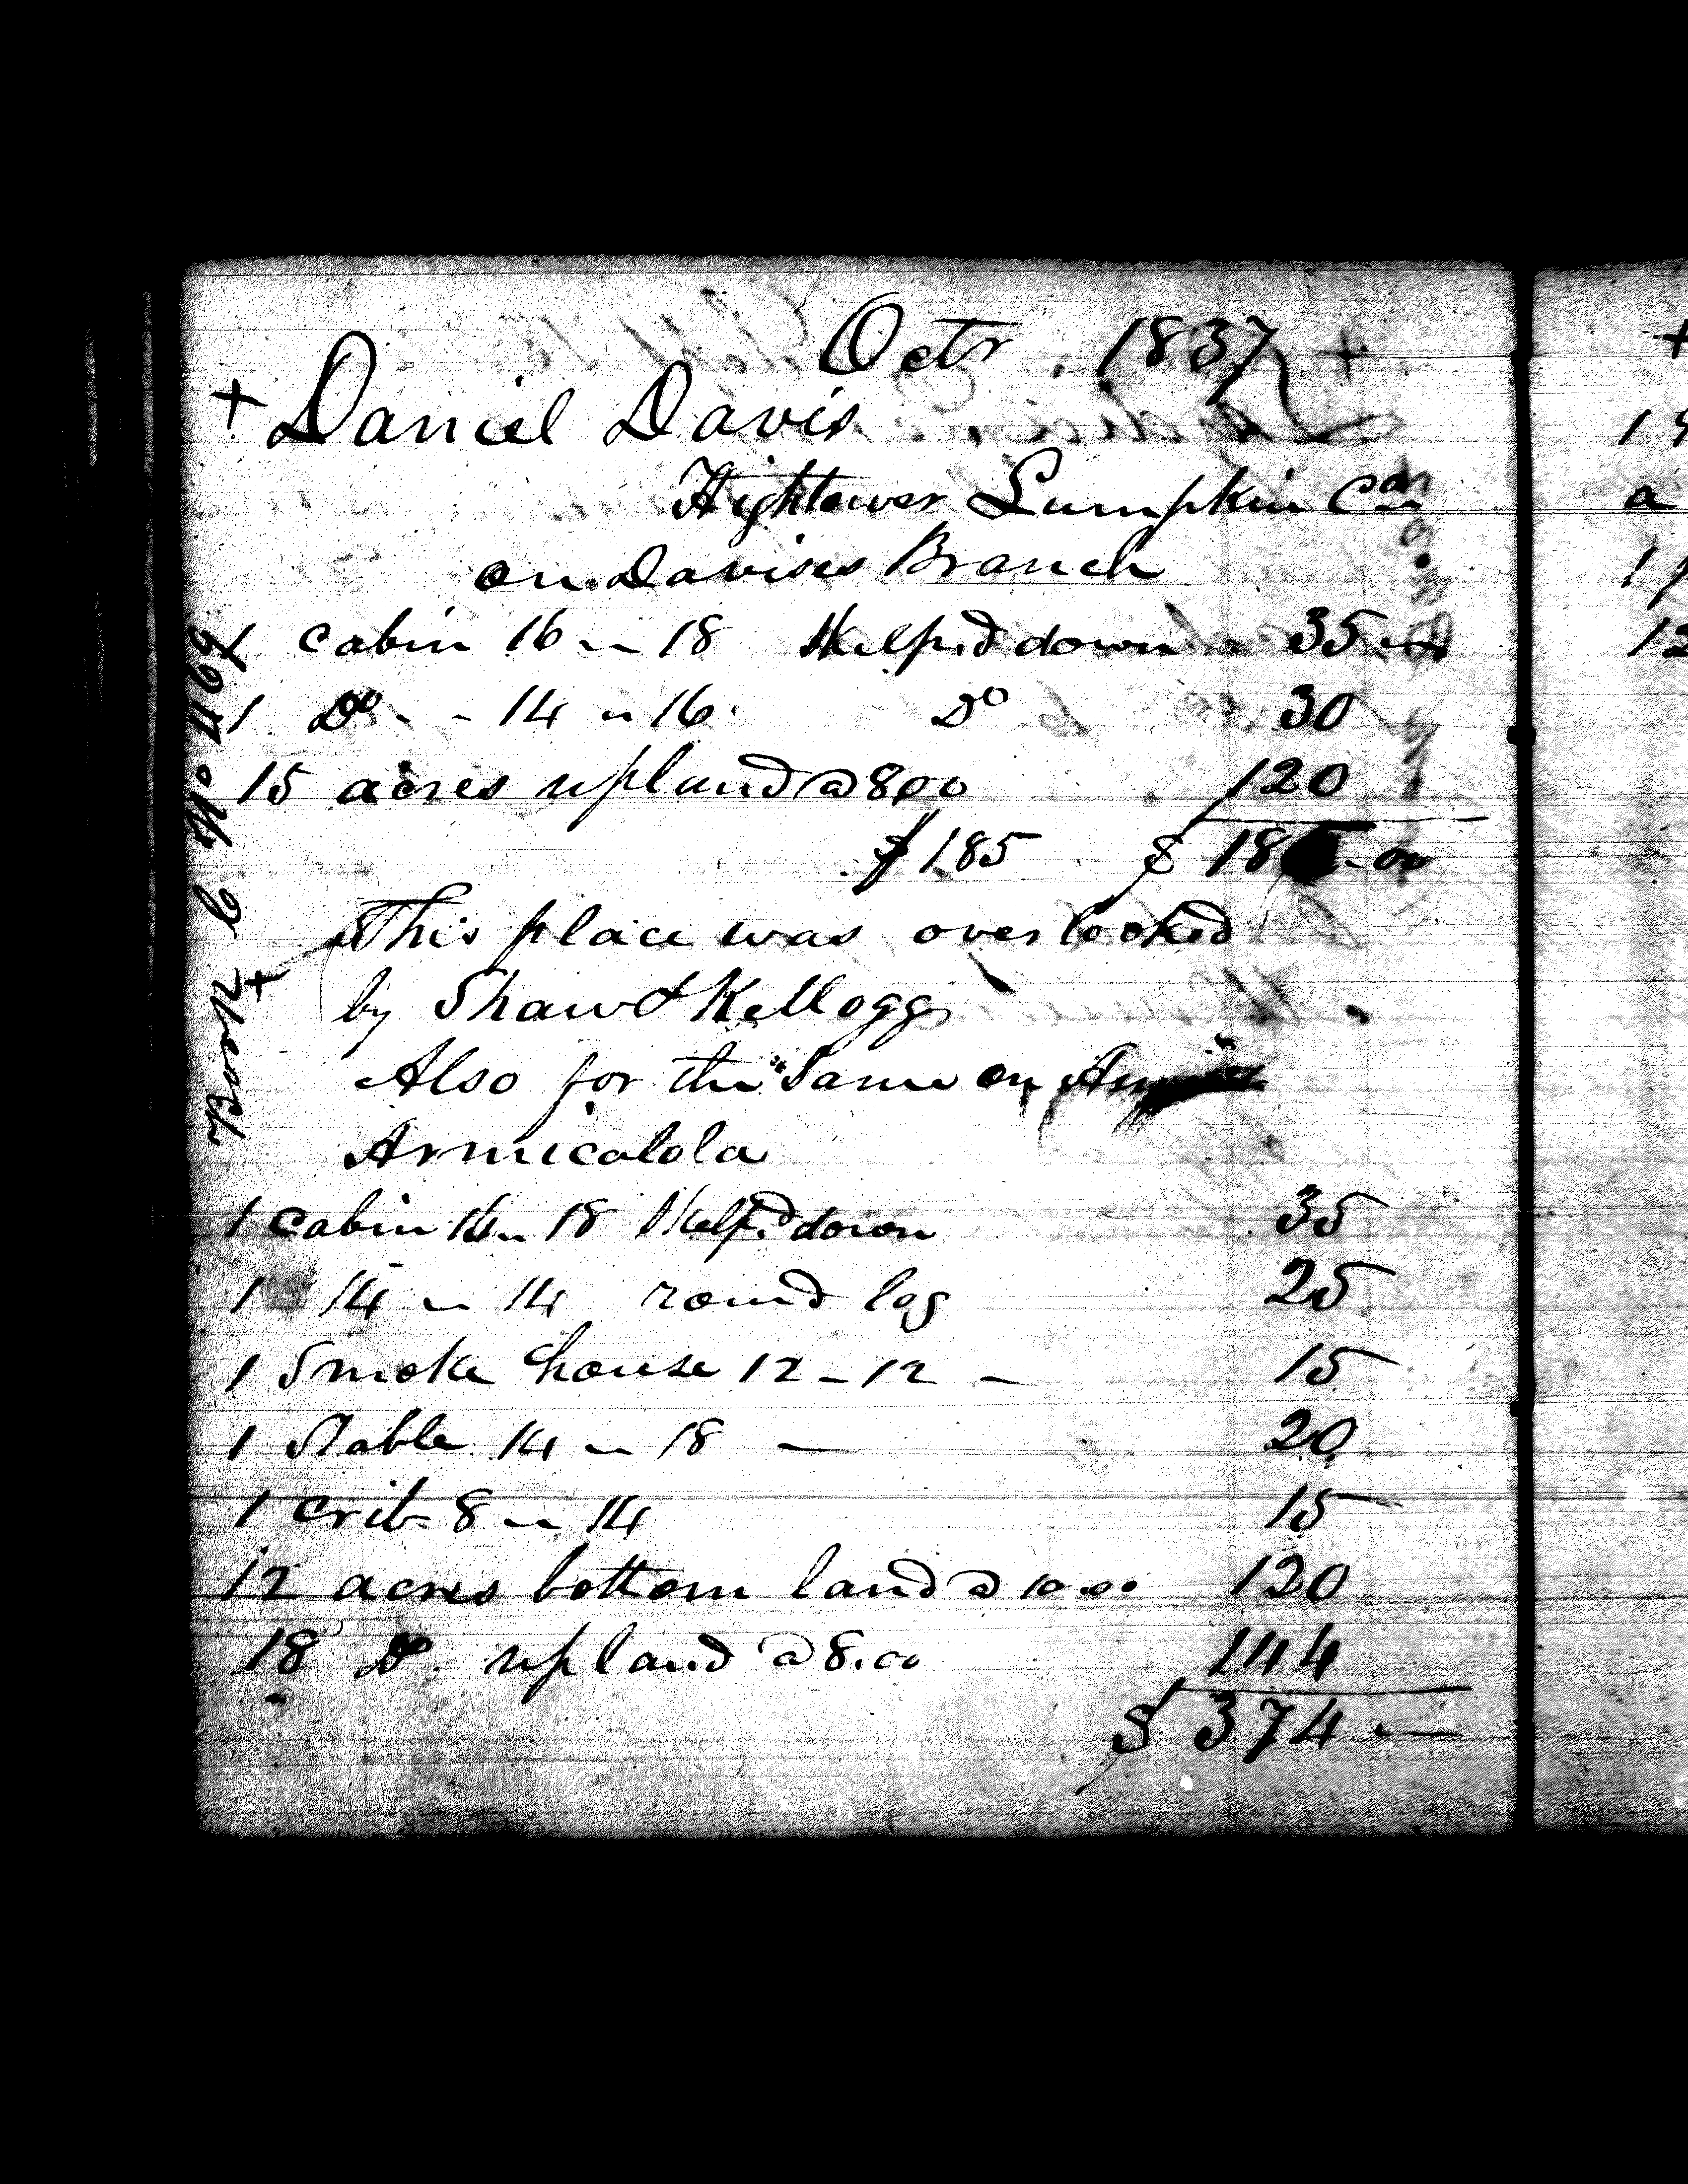 Octr. 1837
+ Daniel Davis
Hightower Lumpkin Co.
on Davises Branch
1 cabin 16 - 18 Skelp.d down 35 -
1 Do - - 14 - 16 Do 30
15 acres upland @ 800 120
$185 $ 18 - 00
This place was overlooked
by Shaw & Kellogg
Also for the Same on
Armicalola
1 cabin 16 - 18 Skelp.d down 35
1 14 - 14 round log 25
1 Smoke house 12 - 12 - 15
1 Stable 14 - 18 - 20
1 crib 8 - 14 15
12 acres bottom land @ 10.00 120
18 Do. upland @ 8.00 144
$ 374 -
Book
+
a